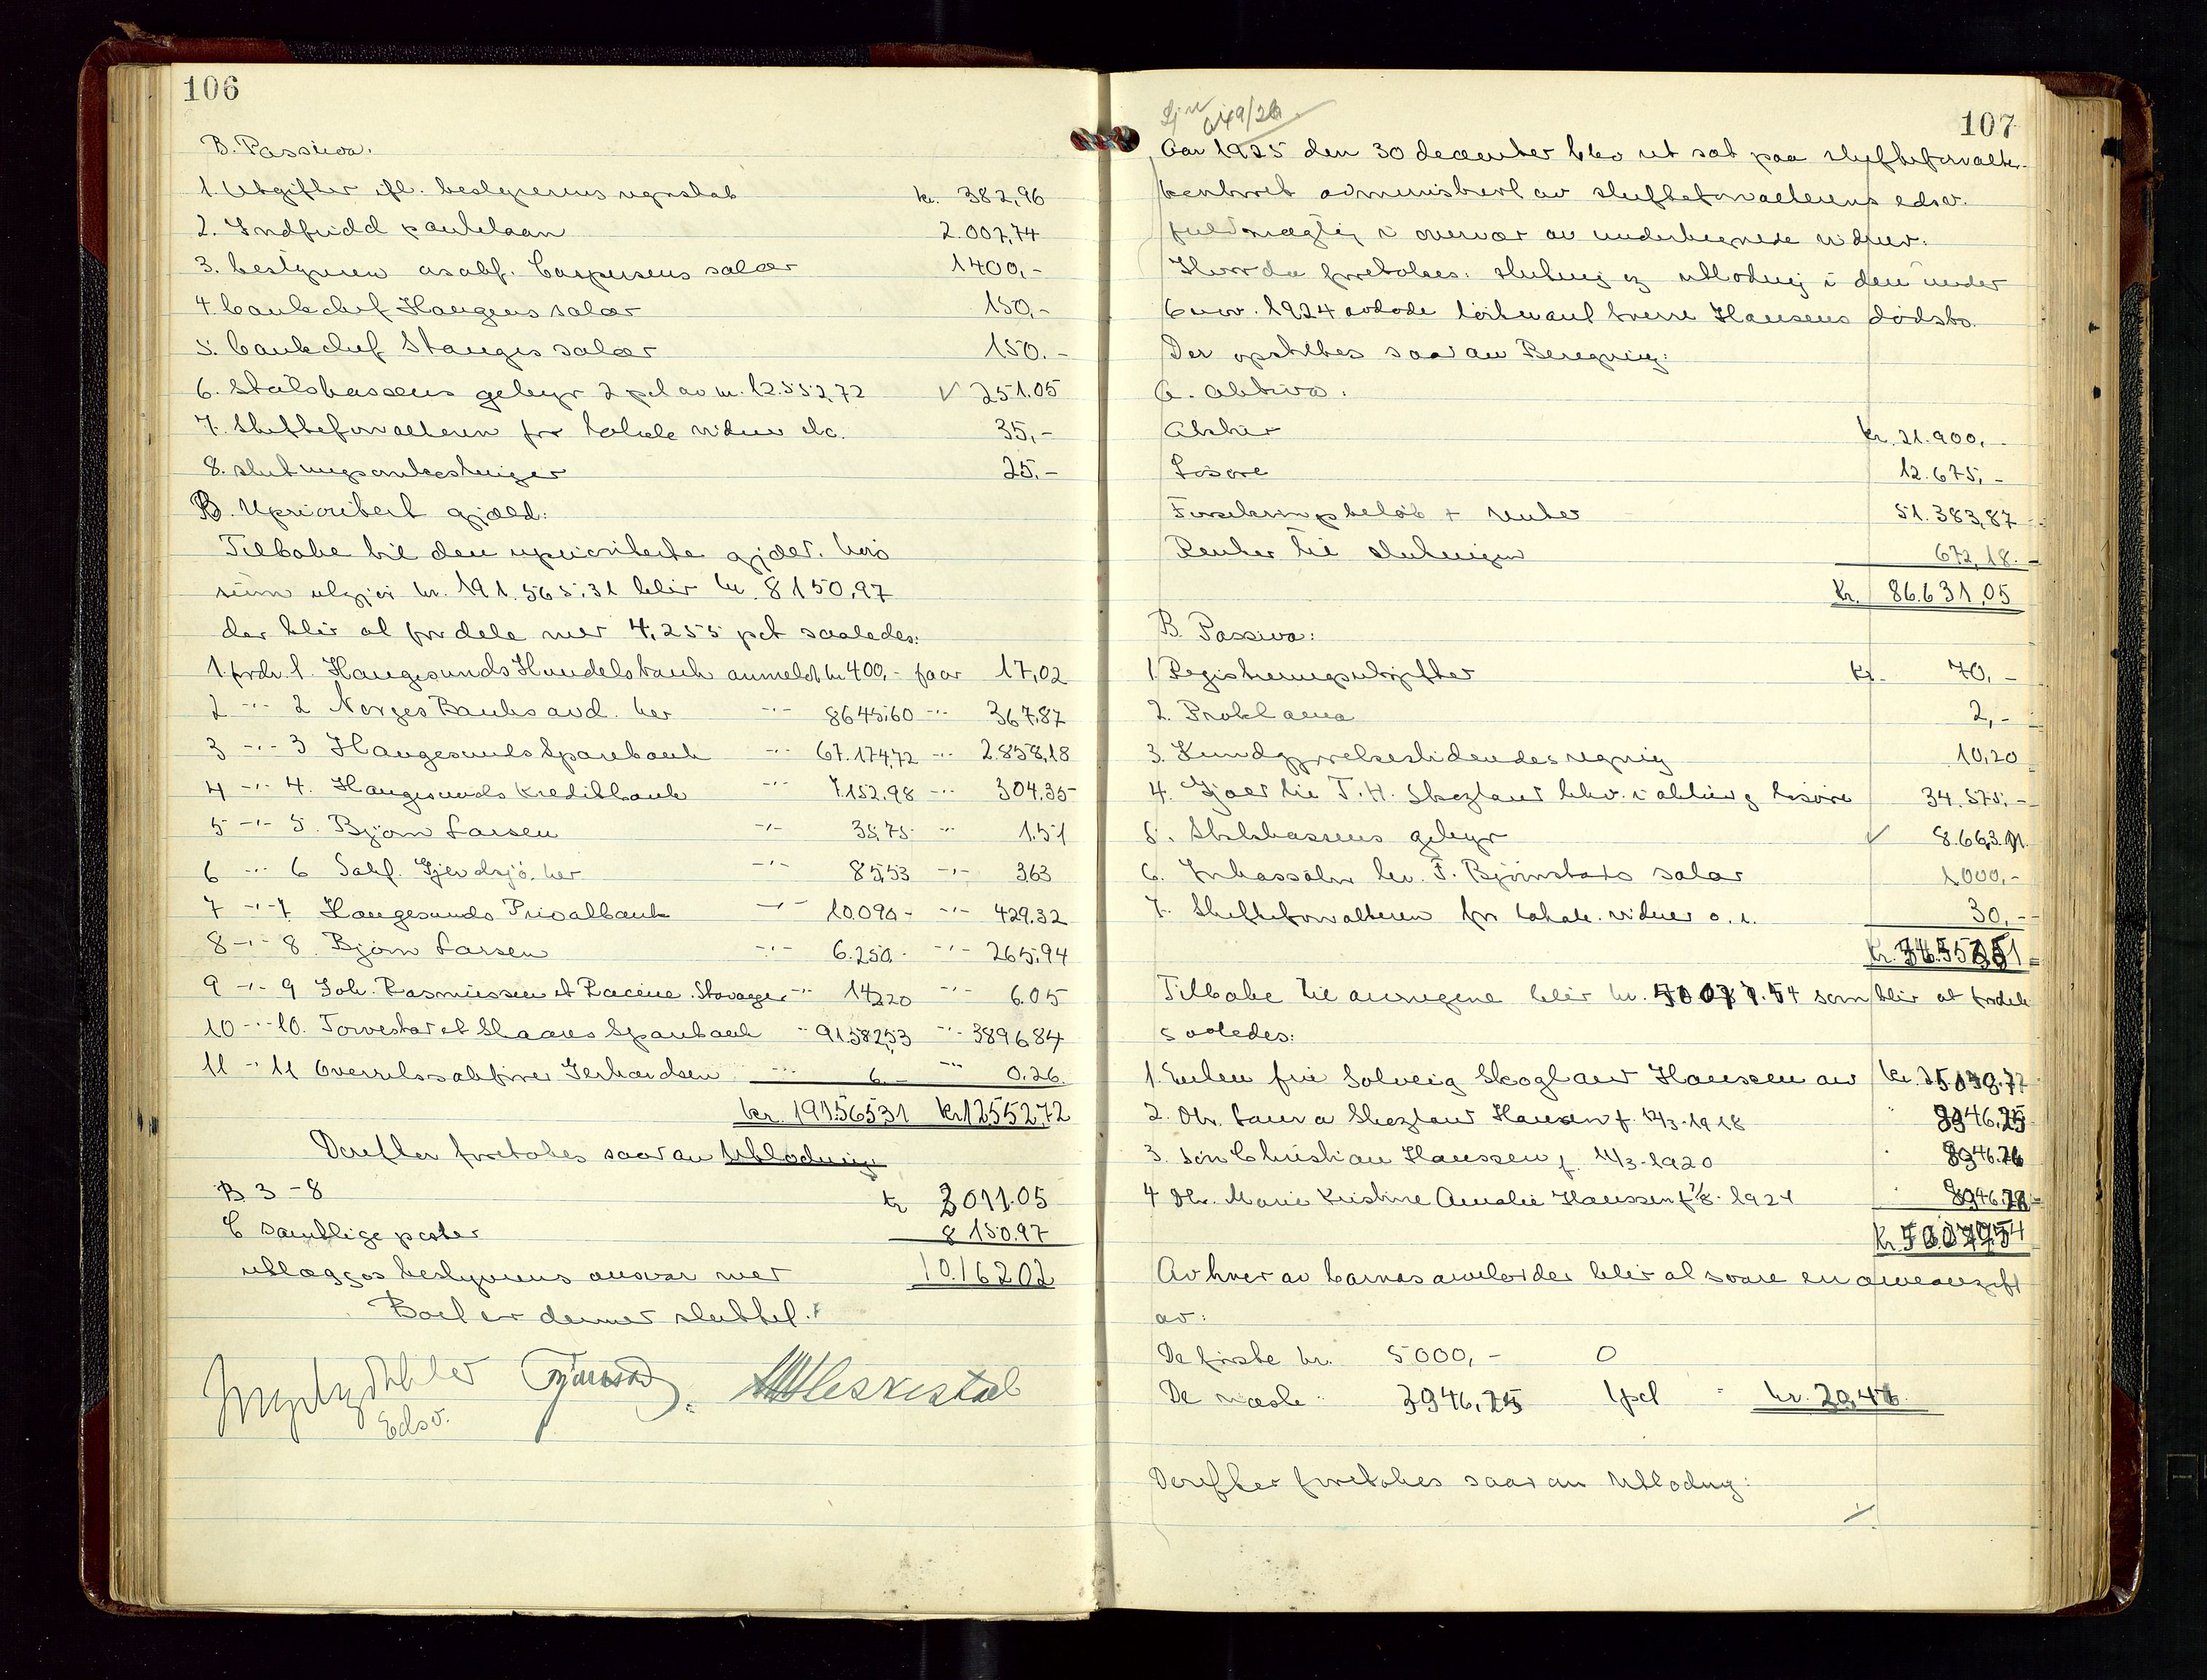 106
B. Passiva.
1. Utgifter ifl. bestyrerens regnskab kr. 382,96
2. Indfridd pantelaan 2.007,74
3. bestyreren o.r.sakf. Caspersens salær 1400,-
4. bankchef Haugens salær 150,-
5. bankchef Stanges salær 150.-
6. Statskassens gebyr 2 pct av kr. 12.552,72 251.05
7. Skifteforvalteren for lokale vidner etc. 35,-
8. slutningsankestninger 25,-
B. Uprioritert gjæld:
Tilbake til den upriorterte gjæld. hvis
sum utgjør kr. 191.565,31 blir kr. 8150,97
der blir at fordele mer 4,255 pct saaledes:
1. fordr. 1. Haugesunds Handelsbank anmeldt kr 400,- faar 17,02
2 -"- 2 Norges Banks avd. her -"- 8645,60 -"- 367,87
3 -"- 3 Haugesunds Sparebank -"- 67.174,72 -"- 2.858,18
4 -"- 4. Haugesunds Kreditbank -"- 7.152,98 -"- 304,35
5 -"- 5. Bjørn Larsen -"- 35,75 -"- 1.51
6 -"- 6 Sakf. Gjerdsjø, her -"- 85,53 -"- 3,63
7 -"- 7 Haugesunds Privatbank -"- 10.090- -"- 429,32
8 -"- 8. Bjørn Larsen -"- 6.250.- -"- 265,94
9 -"- 9 Joh. Rasmussen et Racine. Stavanger -"- 142,20 -"- 6.05
10 -"- 10. Torvestad et Skaares Sparebank -"- 91.582,53 -"- 3896,84
11 -"- 11 Overretssakfører Gerhardsen -"- 6.- -"- 0.26.
kr. 191.565,31 kr 12.552,72
Derefter foretokes saadan Utlodning
B 3-8 kr 2011.05
C samtlige poster 8150.97
utlægges bestyrerens ansvar mer 10.162,02
Boet er dermed sluttet.
Edsv.
107
Aar 1925 den 30 december blev ret sat paa skifteforvalter-
kontoret administrert av skifteforvalterens edsv.
fuldmægtig i overvær av undertegnede vidner.
Hvorda foretokes: slutning og utlodning i den under
6 nov. 1924 avdøde løitnant Sverre Hansens dødsbo.
Der opstilles saadan Beregning:
A. Aktiva:
Aktier kr. 21.900,-
Løsøre 12.675,-
Forsikringsbeløb + renter 51.383,87
Renter til slutningen 672,18.-
Kr. 86.631,05
B. Passiva:
1. Registreringsutgifter Kr. 70,-
2. Proklama 2,-
3. Kundgjørelsestidendes regning 10,20
4. Gjæld til T.H. Skogland bev. i aktier og løsøre 34.575,-
5. Statskassens gebyr
6. Inkassator hr. F. Bjørnstads salær 1000,-
7. Skifteforvalteren for lokale. vidner o. s. 30,-
Tilbake til arvingene blir kr. som blir at fordele
saaledes:
1. Enken fru Solveig Skogland Hanssen arv
2. Dtr. Laura Skogland Hansen f. 12/3-1918
3. Søn Christian Hanssen f. 11/3-1920
4 Dtr. Marie Kristine Amalie Hanssen f 7/8. 1921
Av hver av barnas arvelodder blir at svare en arveavgift
av:
De første kr. 5000,- 0
De næste: 3946,25 1 pct -
Derefter foretokes saadan Utlodning: